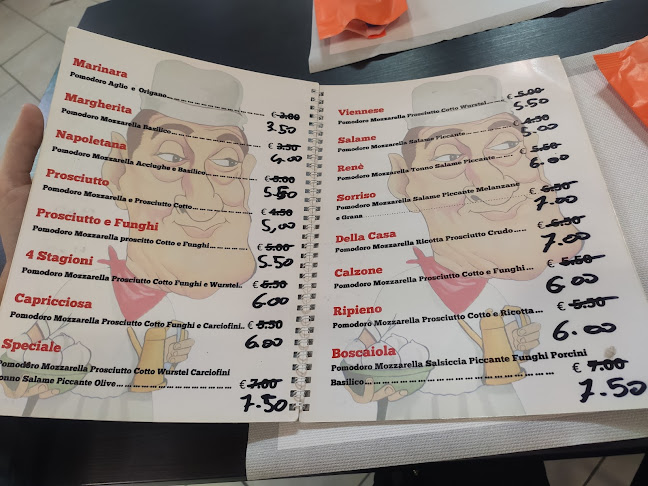 Marinara
Pomodoro Aglio e Origano
€ 3.00
3.50
Margherita
Pomodoro Mozzarella Basilico
€ 3.50
4.00
Napoletana
Pomodoro Mozzarella Acciughe e Basilico
€ 5.00
5.50
Prosciutto
Pomodoro Mozzarella e Prosciutto Cotto
€ 4.50
5,00
Prosciutto e Funghi
Pomodoro Mozzarella prosciitto Cotto e Funghi
€ 5.00
5.50
4 Stagioni
Pomodoro Mozzarella Prosciutto Cotto Funghi e Wurstel..
€ 5.50
6.00
Capricciosa
Pomodoro Mozzarella Prosciutto Cotto Funghi e Carciofini..
€ 5.50
6.00
Speciale
Pomodoro Mozzarella Prosciutto Cotto Wurstel Carciofini
Tonno Salame Piccante Olive
€ 7.00
7.50
Viennese
Pomodoro Mozzarella Prosciutto Cotto Wurstel
€ 5.00
5.50
Salame
Pomodoro Mozzarella Salame Piccante
€ 4.50
5.00
Renè
Pomodoro Mozzarella Tonno Salame Piccante
€ 5.50
6.00
Sorriso
Pomodoro Mozzarella Salame Piccante Melanzane
e Grana
€ 6.50
7.00
Della Casa
Pomodoro Mozzarella Ricotta Prosciutto Crudo
€ 6.50
7.00
Calzone
Pomodoro Mozzarella Prosciutto Cotto e Funghi
€ 5.50
6.00
Ripieno
Pomodoro Mozzarella Prosciutto Cotto e Ricotta
€ 5.50
6.00
Boscaiola
Pomodoro Mozzarella Salsiccia Piccante Funghi Porcini
Basilico
€ 7.00
7.50